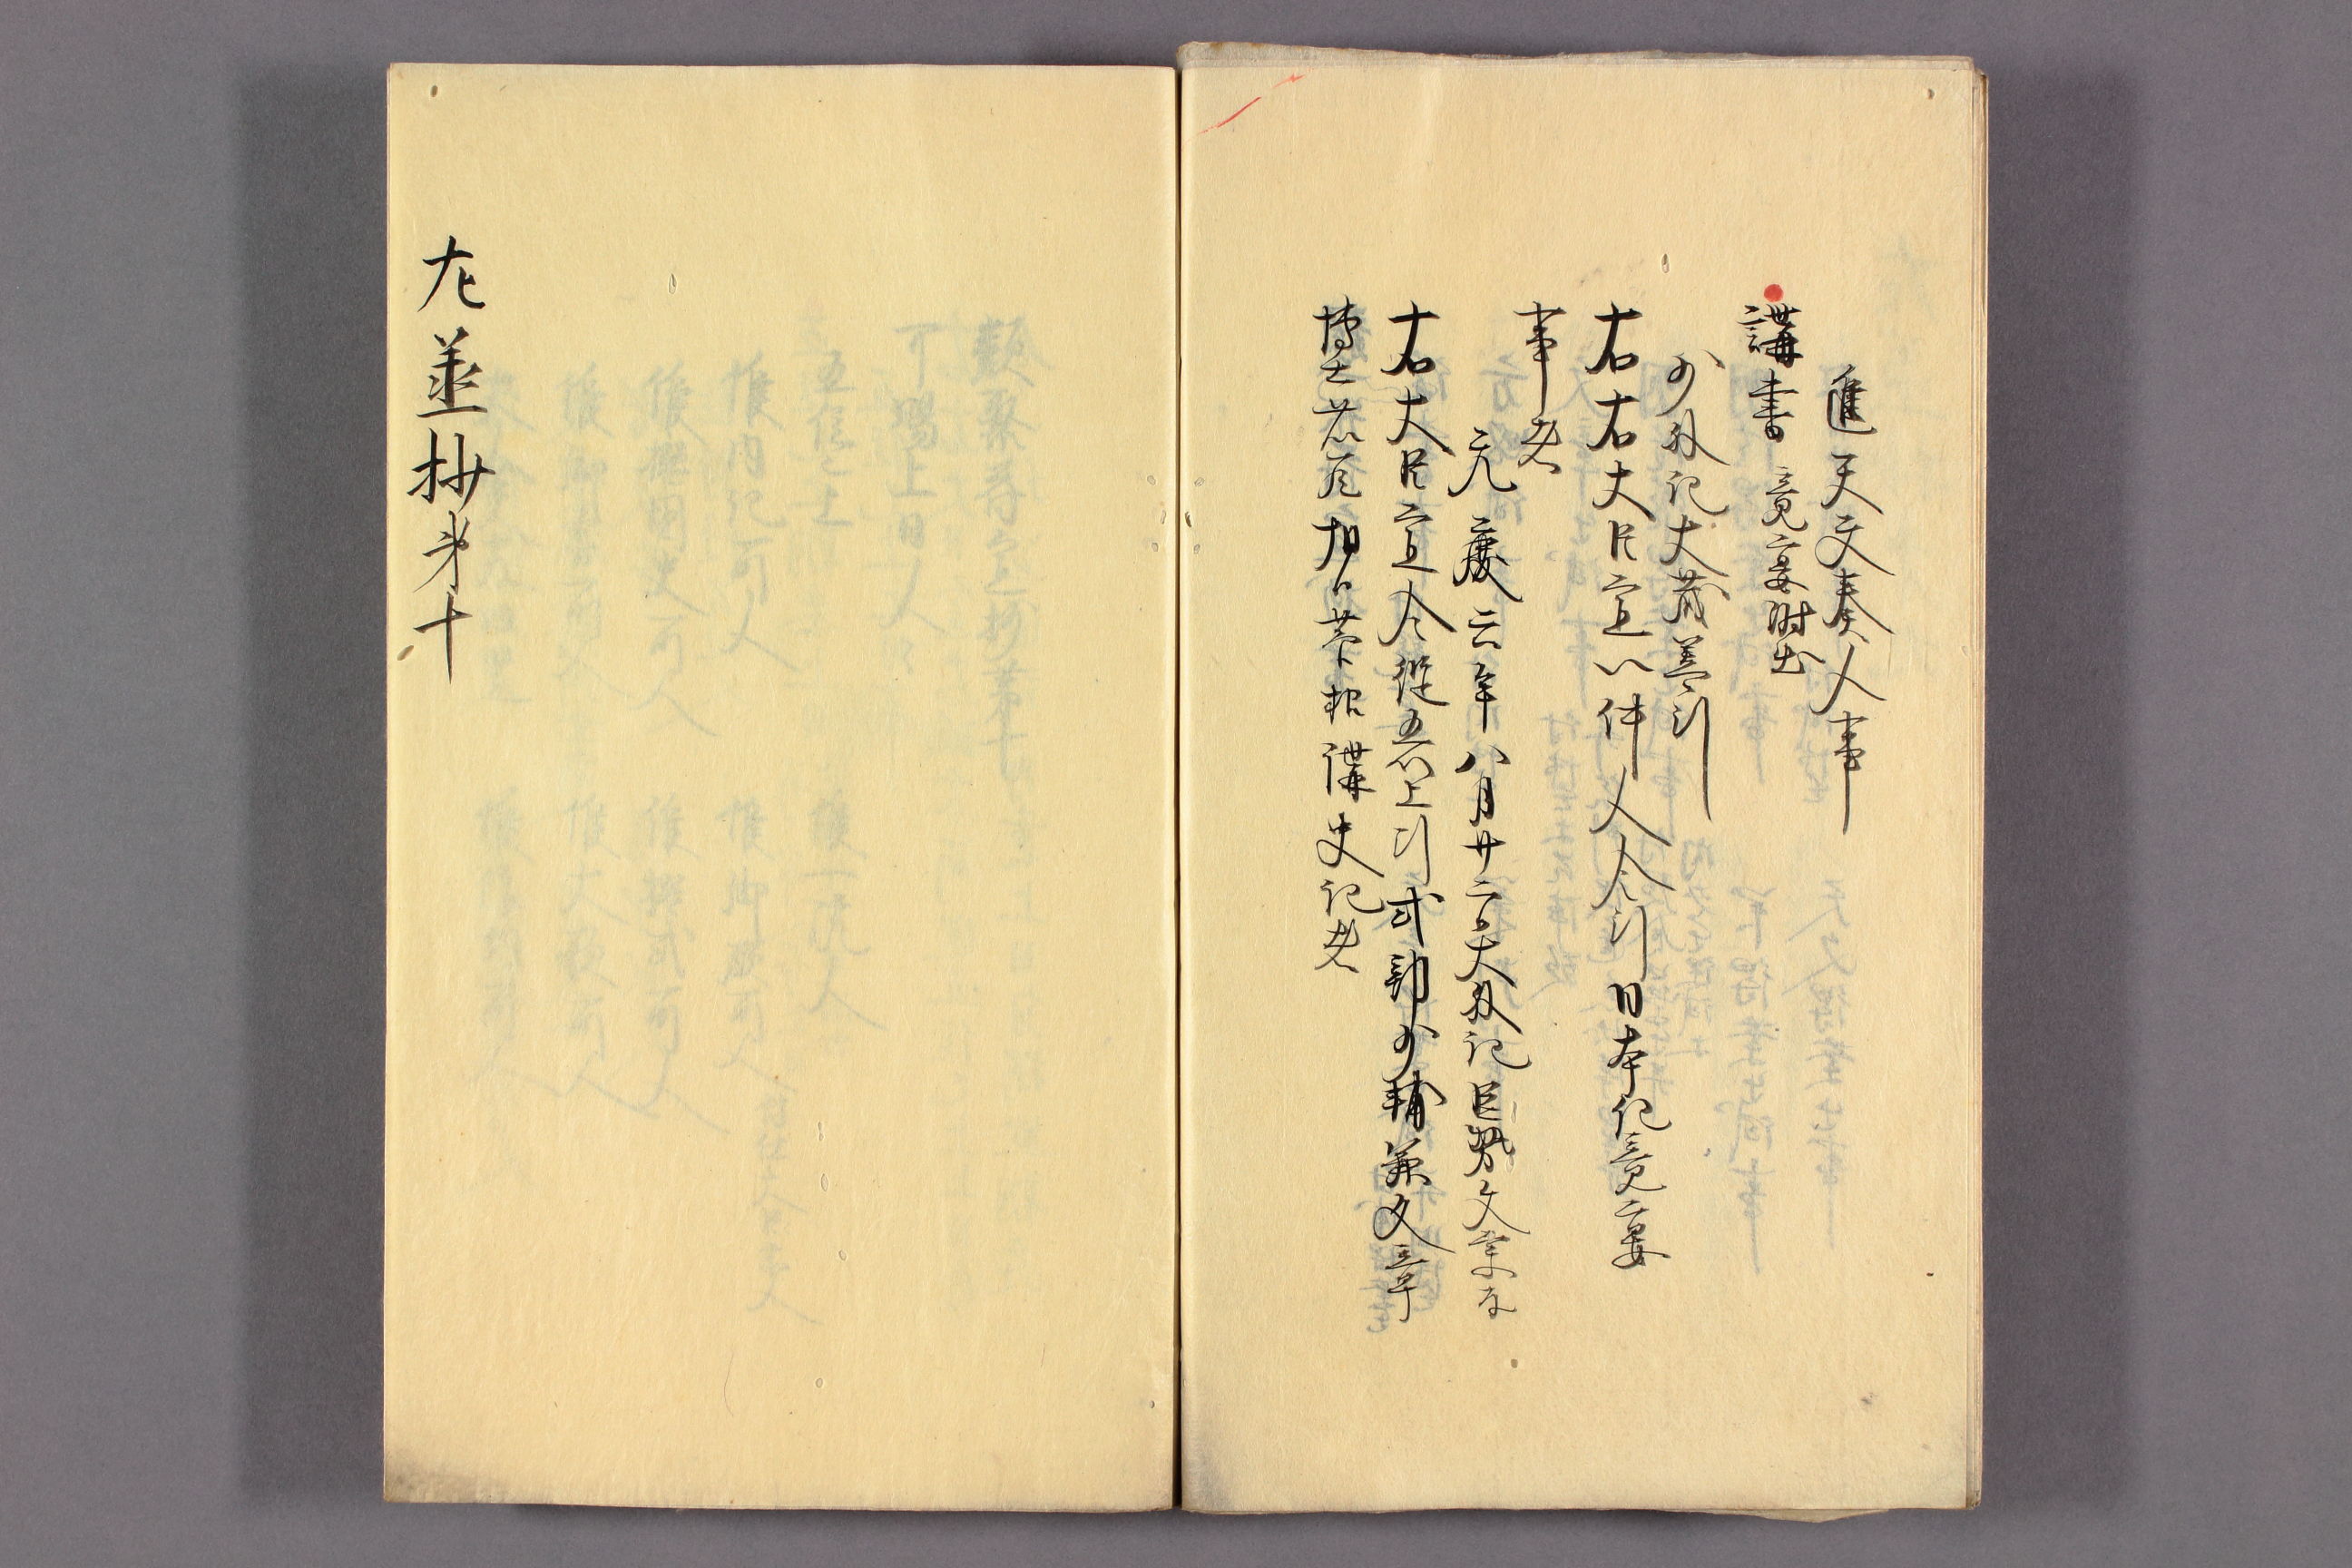 進天文奏人事
講書 竟宴附出
少外記大蔵善行
右右大臣宣以件人令行日本紀竟宴
事者
元慶六年八月廿二日大外記巨勢文宗奉
右大臣宣令従五位上行式部少輔兼文章
博士菅原朝臣 講史記者
左丞抄第十